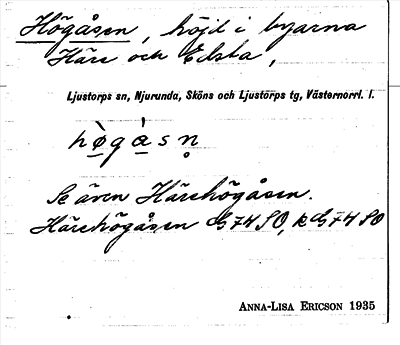 Högåsen, höjd i byarna
Häre och Edsta,
Ljustorps sn, Njurunda, Sköns och Ljustorps tg, Västernorrl. l.
hø̀gà̲sn̥
Se även Härehögåsen.
Härehögåsen G 74 SO, k G 74 SO
ANNA-LISA ERICSON 1935